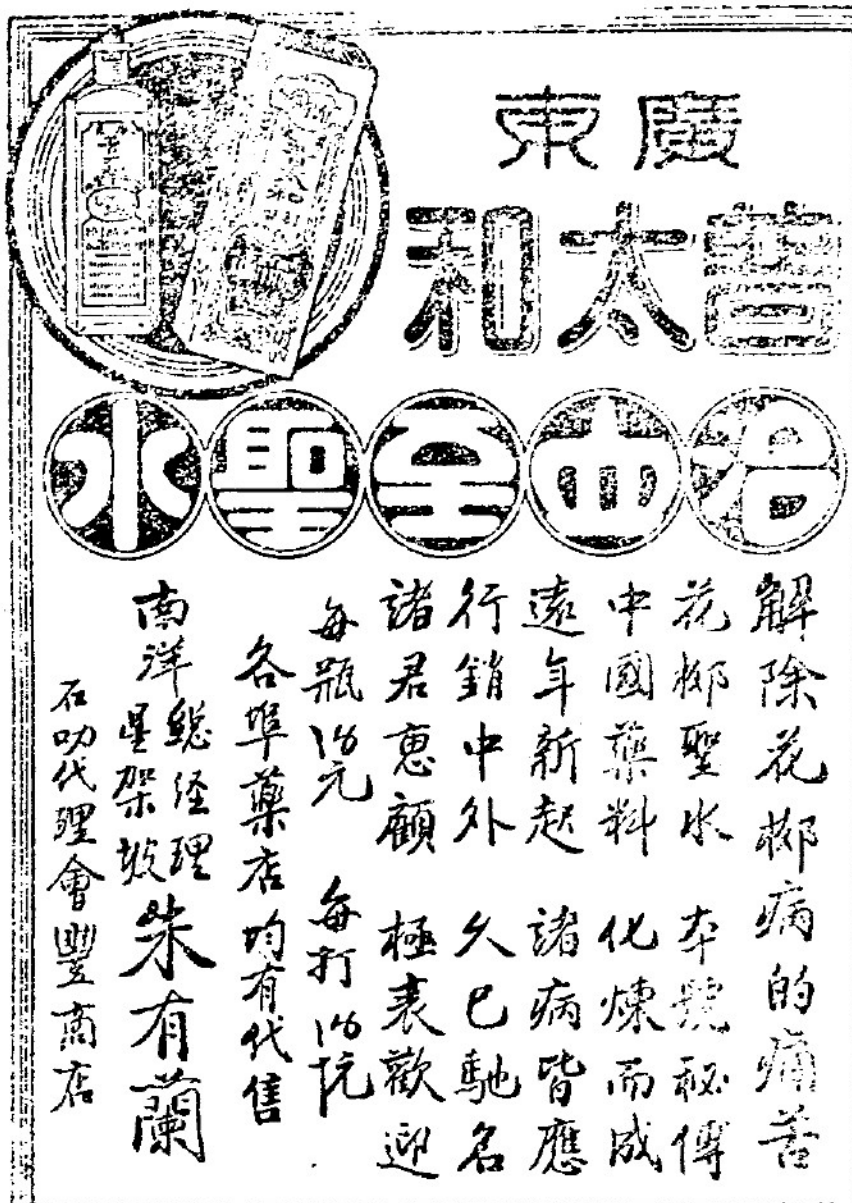 廣東
太和
至聖水
解除花柳病的痛苦
花柳聖水 本號秘傳
中國藥料 化煉而成
遠年新起 諸病皆應
行銷中外 久已馳名
諸君惠顧 極表歡迎
每瓶 元 每打
各埠藥店均有代售
南洋總經理
星架坡朱有蘭
石叻代理會豐商店